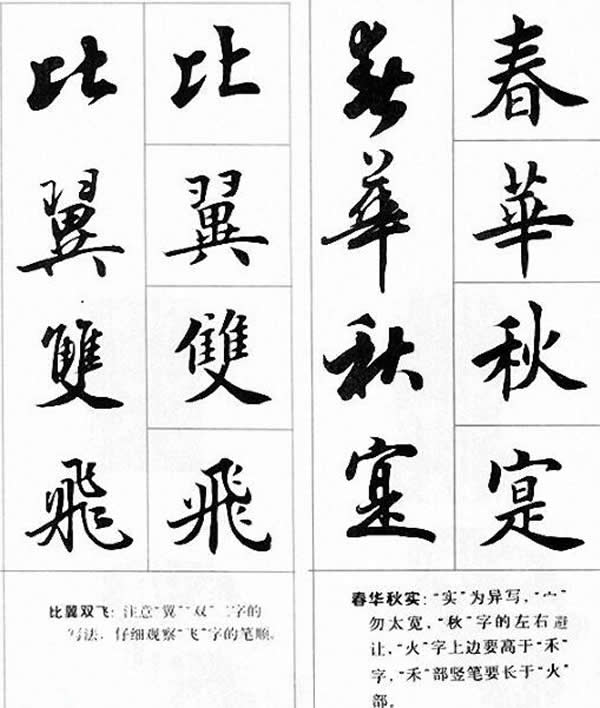 比翼雙飛
比翼雙飛
比翼双飞：注意“翼”“双”二字的
写法，仔细观察“飞”字的笔顺。
春華秋寔
春華秋寔
春华秋实：“实”为异写，“宀”
勿太宽，“秋”字的左右避
让，“火”字上边要高于“禾”
字，“禾”部竖笔要长于“火”
部。